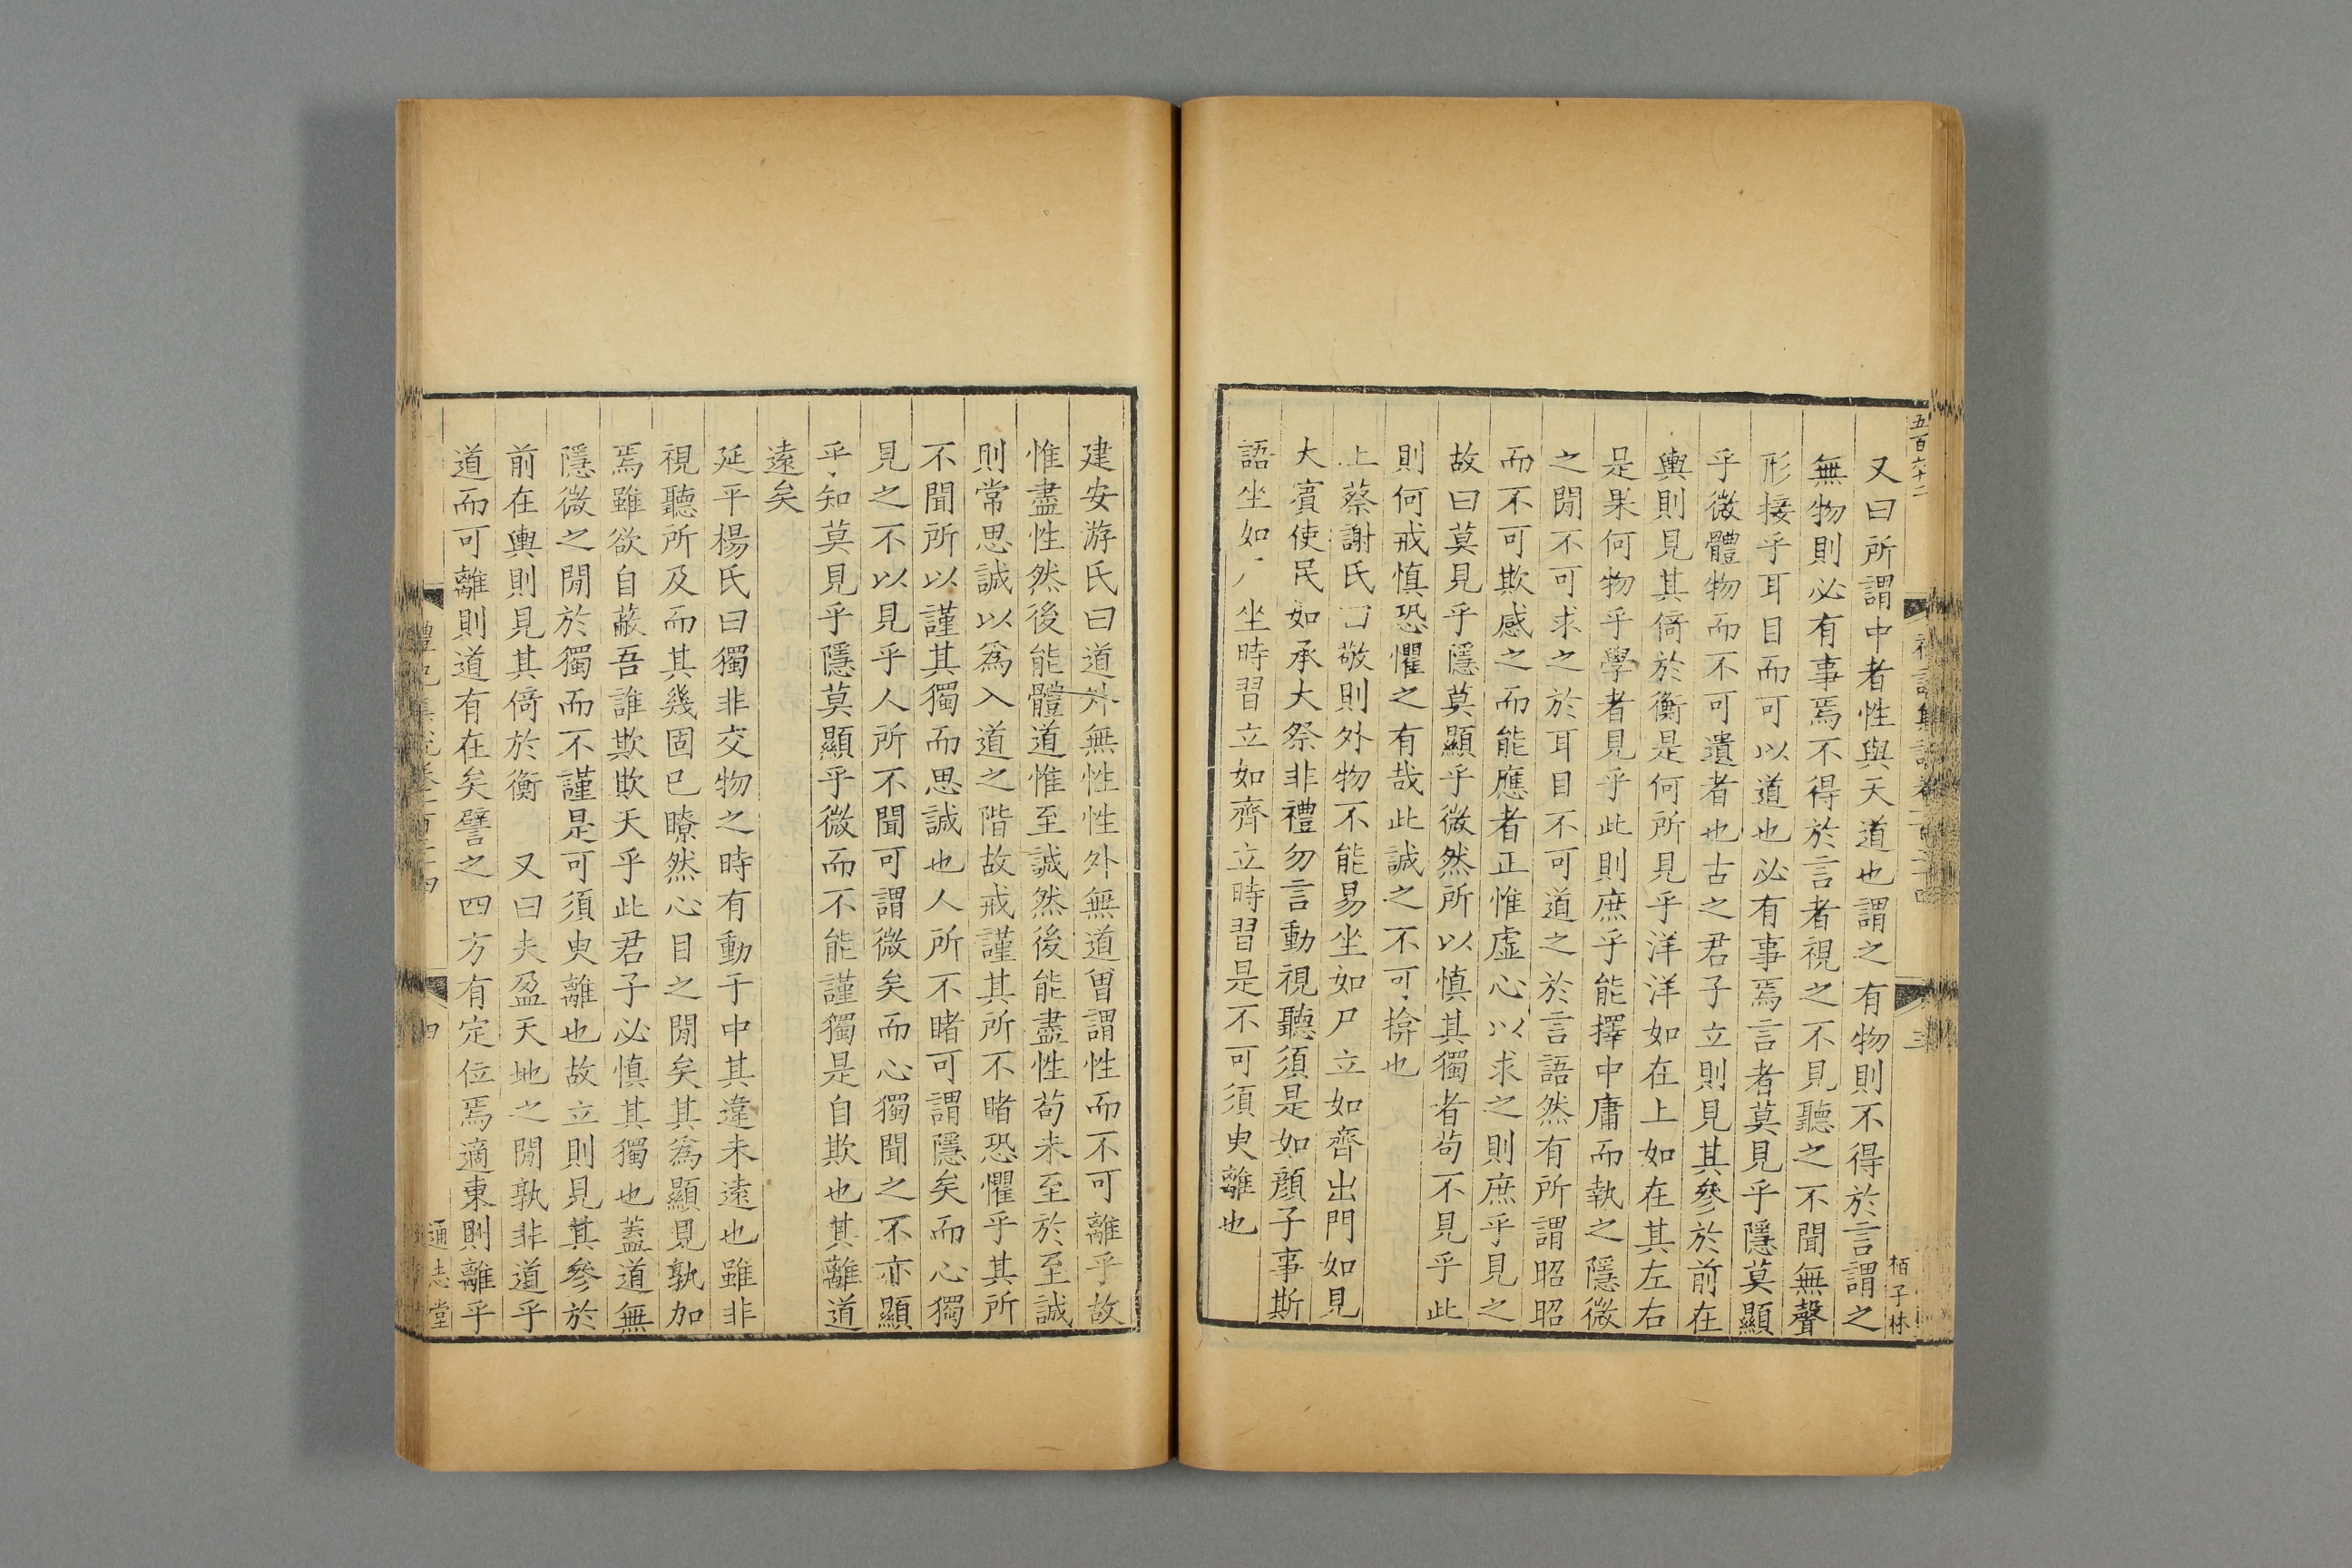 五百六十二
又曰所謂中者性與天道也謂之有物則不得於言謂之
無物則必有事焉不得於言者視之不見聽之不聞無聲
形接乎耳目而可以道也必有事焉言者莫見乎隱莫顯
乎微體物而不可遺者也古之君子立則見其參於前在
輿則見其倚於衡是何所見乎洋洋如在上如在其左右
是果何物乎學者見乎此則庶乎能擇中庸而執之隱微
之閒不可求之於耳目不可道之於言語然有所謂昭昭
而不可欺感之而能應者正惟虛心以求之則庶乎見之
故曰莫見乎隱莫顯乎微然所以慎其獨者苟不見乎此
則何戒慎恐懼之有哉此誠之不可揜也
上蔡謝氏曰敬則外物不能易坐如尸立如齊出門如見
大賓使民如承大祭非禮勿言動視聽須是如顏子事斯
語坐如尸坐時習立如齊立時習是不可須臾離也
三
栢子林
建安游氏曰道外無性性外無道曾謂性而不可離乎故
惟盡性然後能體道惟至誠然後能盡性苟未至於至誠
則常思誠以為入道之階故戒謹其所不睹恐懼乎其所
不聞所以謹其獨而思誠也人所不睹可謂隱矣而心獨
見之不以見乎人所不聞可謂微矣而心獨聞之不亦顯
乎知莫見乎隱莫顯乎微而不能謹獨是自欺也其離道
遠矣
延平楊氏曰獨非交物之時有動于中其違未遠也雖非
視聽所及而其幾固已瞭然心目之閒矣其為顯見孰加
焉雖欲自蔽吾誰欺欺天乎此君子必慎其獨也蓋道無
隱微之閒於獨而不謹是可須臾離也故立則見其參於
前在輿則見其倚於衡　又曰夫盈天地之閒孰非道乎
道而可離則道有在矣譬之四方有定位焉適東則離乎
四
通志堂